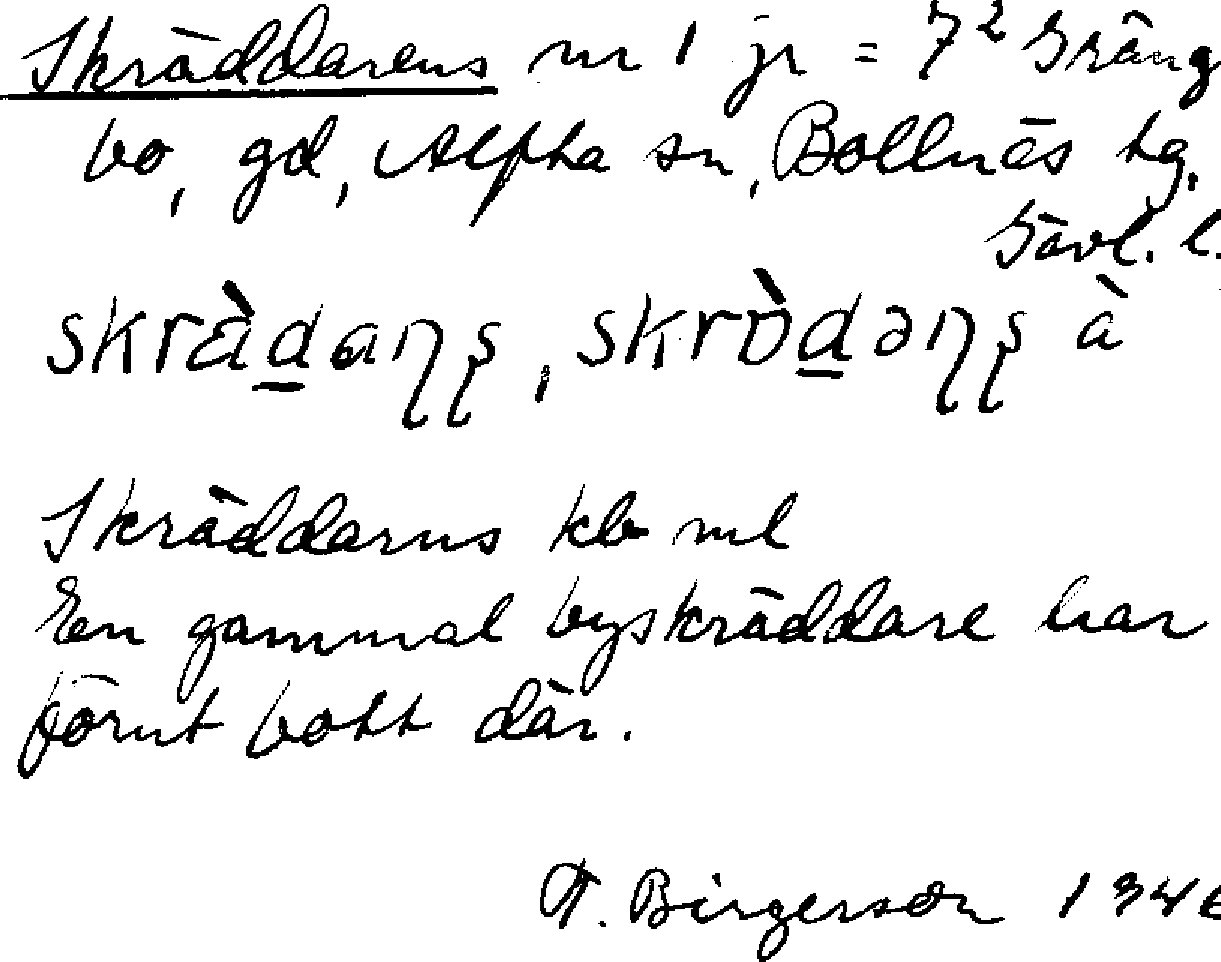 Skräddarens nr 1 jr = 7² Gräng
bo, gd, Alfta sn, Bollnäs tg.
Gävl. l.
skràdaņş, skròdəņş à
Skräddarns kb ml
En gammal byskräddare har
förut bott där.
T. Birgerson 1946